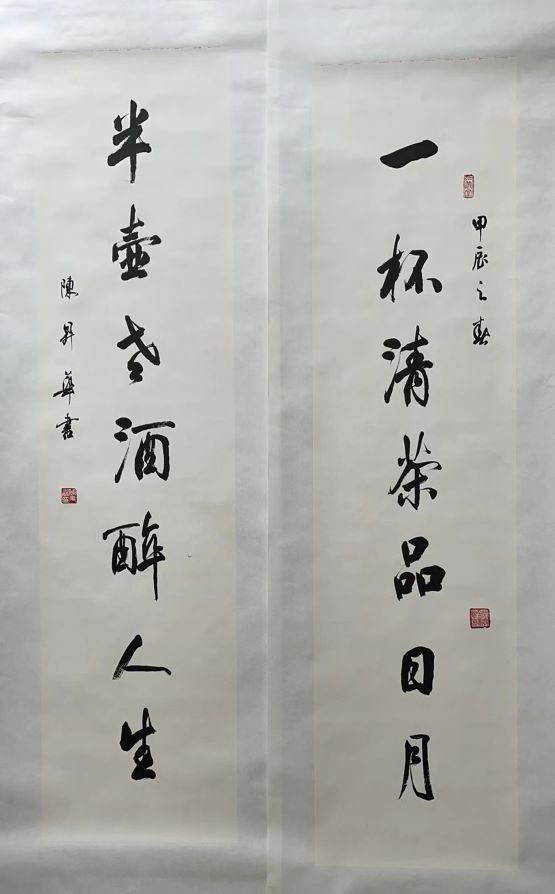 一杯清茶品日月
甲辰之春
半壶老酒醉人生
陳昇華書